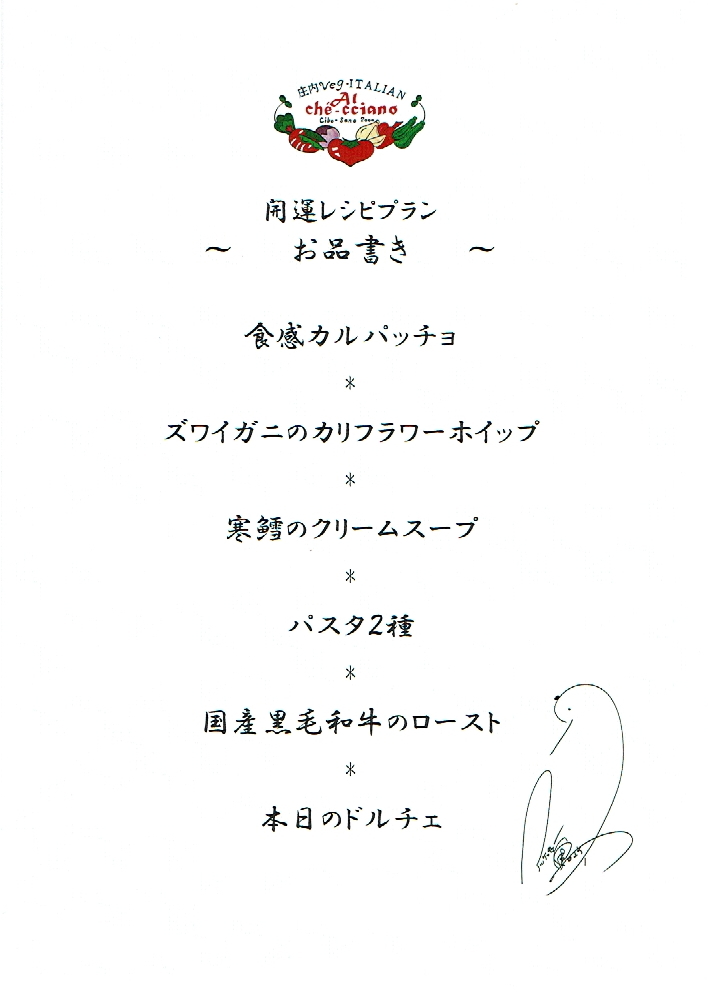 庄内Veg-ITALIAN
Al
ché-cciano
開運レシピプラン
～　お品書き　～
食感カルパッチョ
＊
ズワイガニのカリフラワーホイップ
＊
寒鱈のクリームスープ
＊
パスタ2種
＊
国産黒毛和牛のロースト
＊
本日のドルチェ